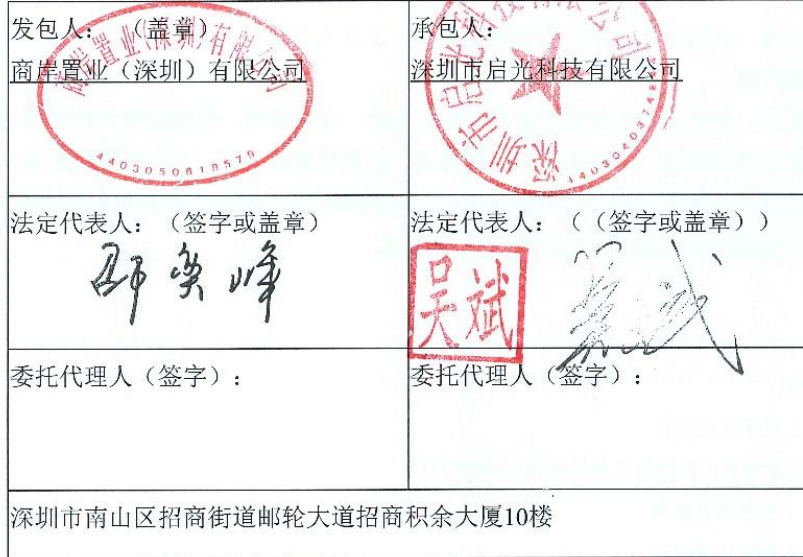 发包人：（盖章）
商岸置业（深圳）有限公司
商岸置业（深圳）有限公司
4403050618579
承包人：
深圳市启光科技有限公司
深圳市启光科技有限公司
法定代表人：（签字或盖章）
邵奕峰
法定代表人：（（签字或盖章））
吴斌
吴斌
委托代理人（签字）：
委托代理人（签字）：
深圳市南山区招商街道邮轮大道招商积余大厦10楼